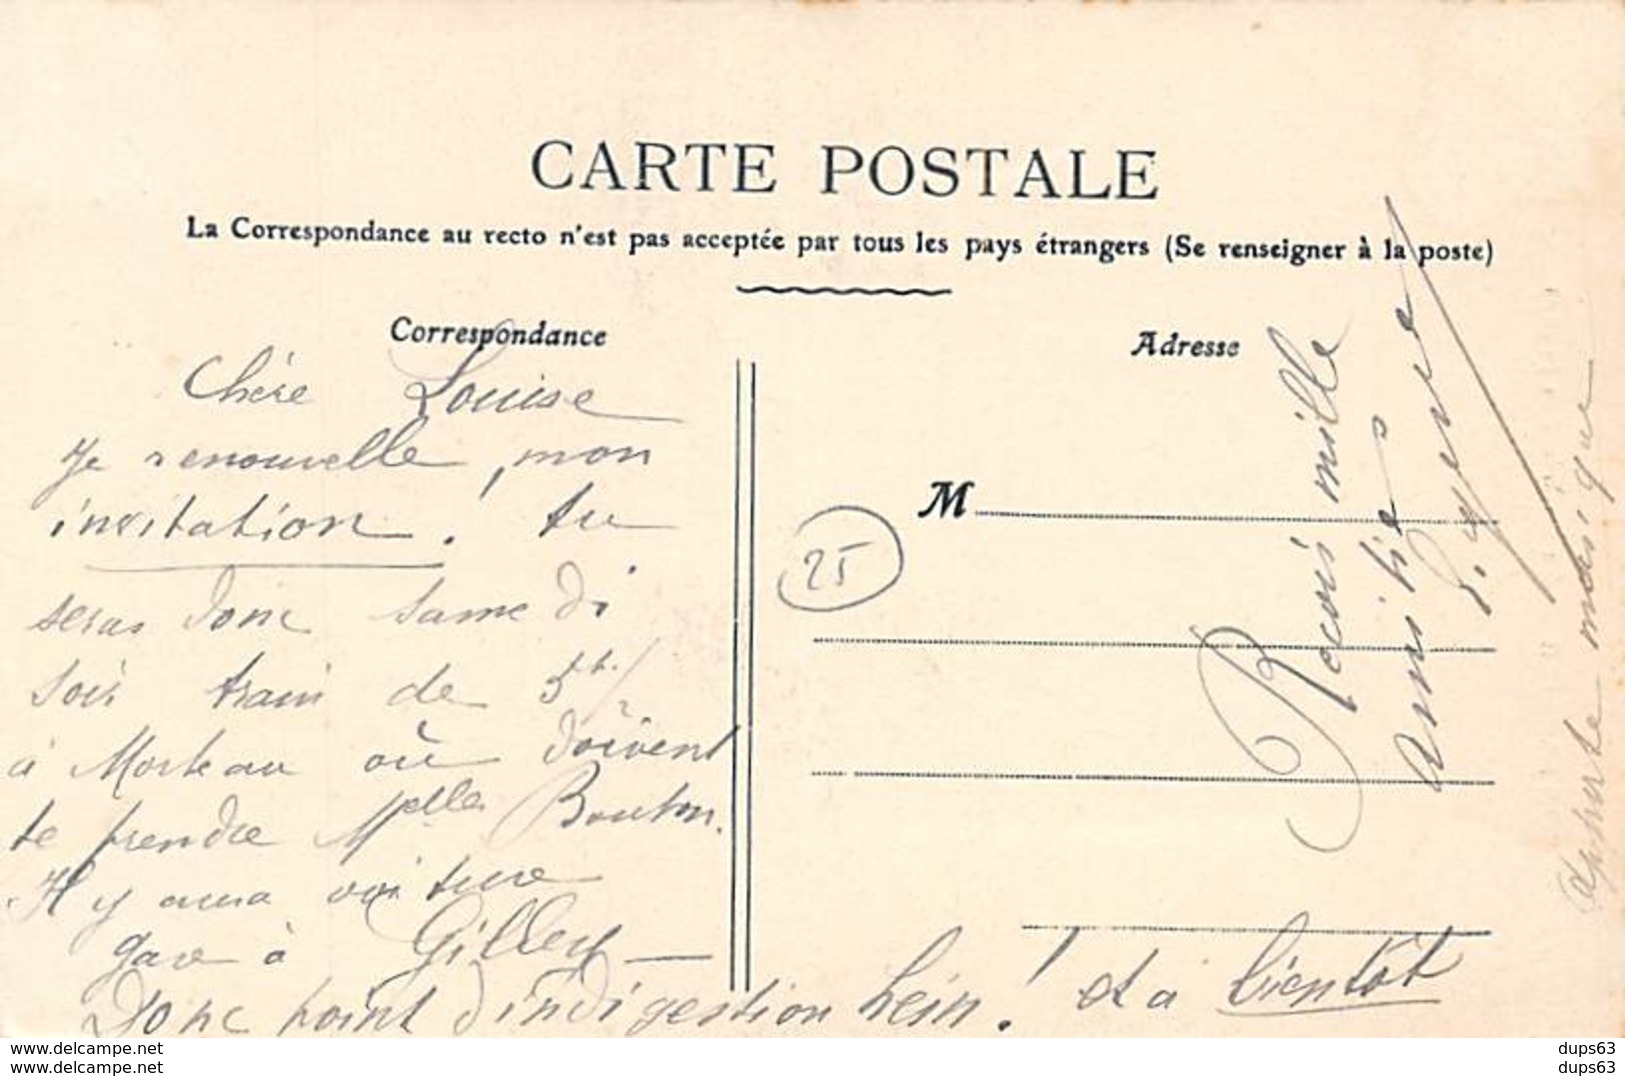 CARTE POSTALE
La Correspondance au recto n'est pas acceptée par tous les pays étrangers (Se renseigner à la poste)
Correspondance
Chère Louise
Je renouvelle mon
invitation! tu
seras donc samedi
soir train de 5h.
à Morteau où doivent
te prendre Melles Bouton.
Il y aura voiture
gare à Gilley
Donc point d'indigestion hein! et à bientôt
Adresse
M
25
Reçois mille
amitiés
apporte musique
www.delcampe.net
www.delcampe.net
dups63
dups63